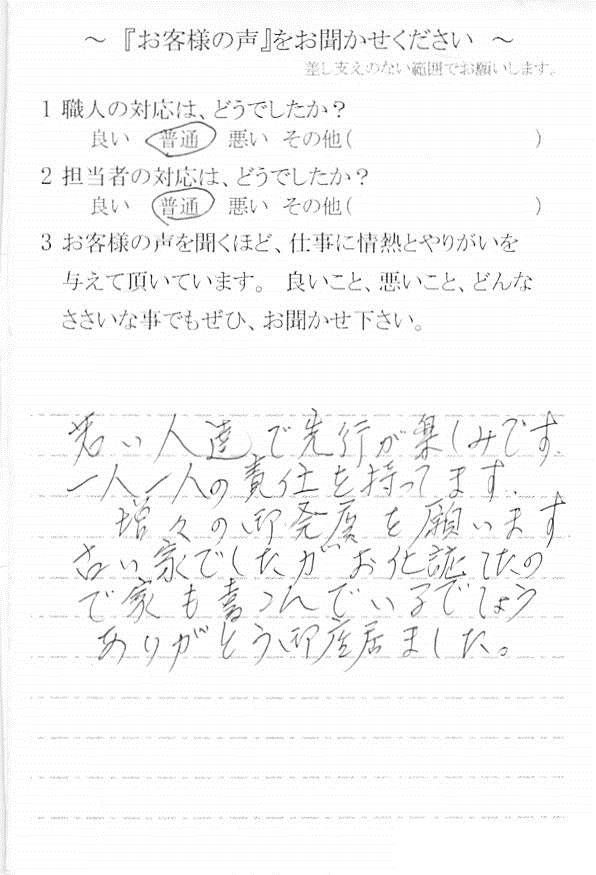 ～『お客様の声』をお聞かせください ～
差し支えのない範囲でお願いします。
1 職人の対応は、どうでしたか？
良い 普通 悪い その他( )
2 担当者の対応は、どうでしたか？
良い 普通 悪い その他( )
3 お客様の声を聞くほど、仕事に情熱とやりがいを
与えて頂いています。 良いこと、悪いこと、どんな
ささいな事でもぜひ、お聞かせ下さい。
若い人達で先行が楽しみです.
一人一人の責任を持ってます.
増々の御発展を願います
古い家でしたがお化粧したの
で家も喜こんでいるでしょう
ありがとう御座居ました。